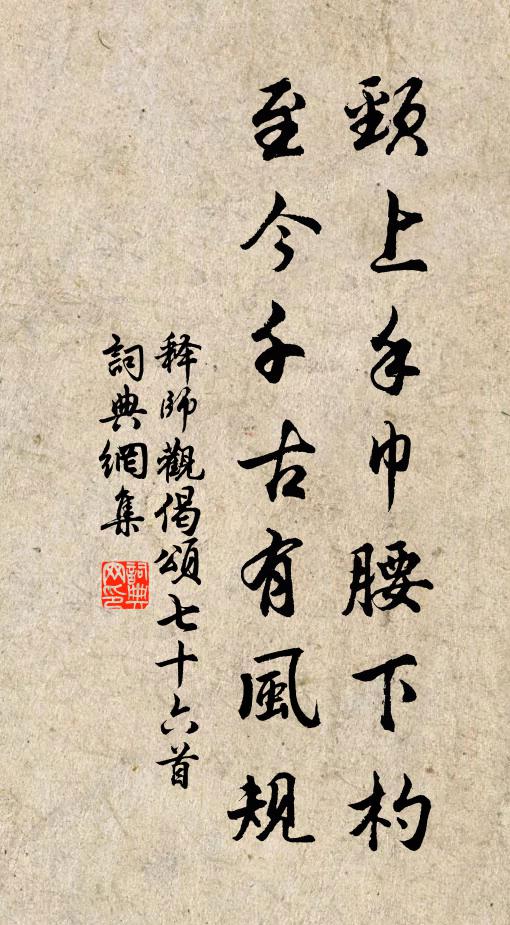 頸上手巾腰下杓
至今千古有風規
释師觀偈頌七十六首
詞典網集
詞典网印